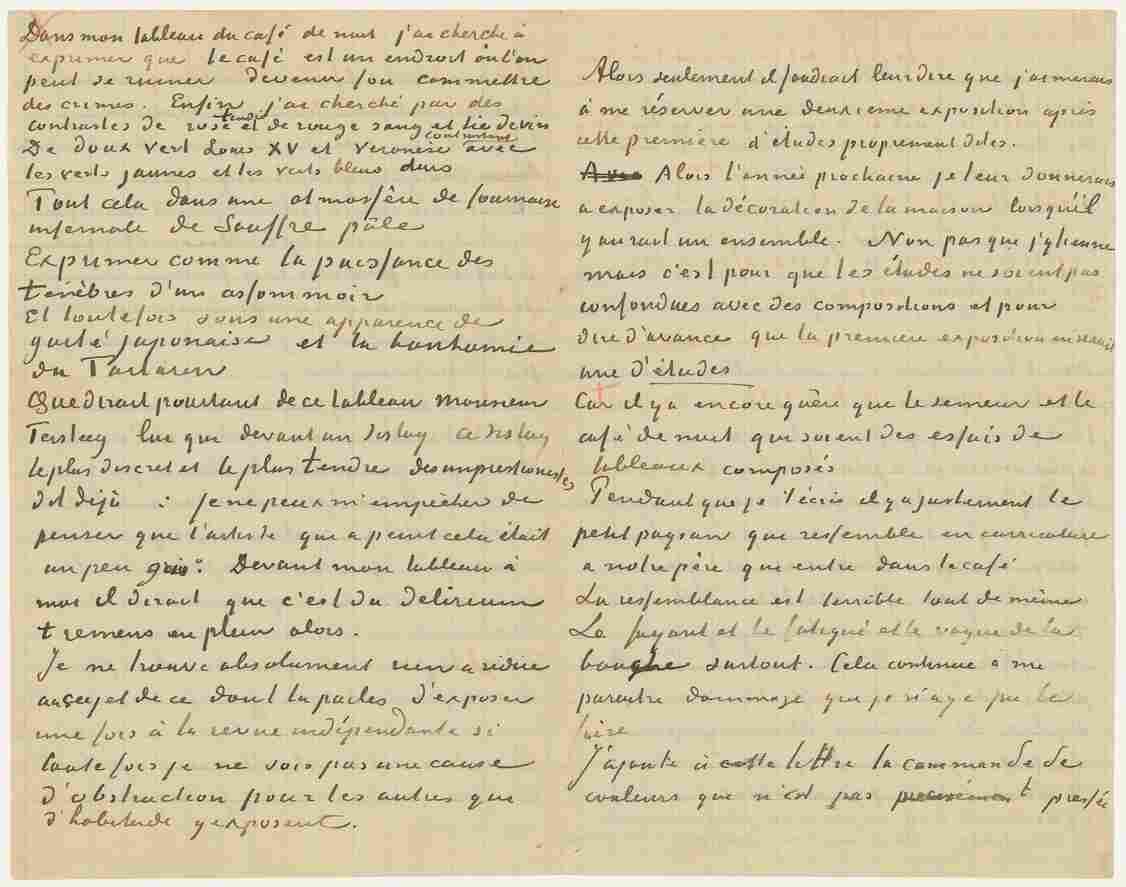 Dans mon tableau du café de nuit j'ai cherché à
exprimer que le café est un endroit où l'on
peut se ruiner devenir fou commettre
des crimes. Enfin j'ai cherché par des
contrastes de rose tendre et de rouge sang et lie de vin
De doux vert Louis XV et Veronèse contrastant avec
les verts jaunes et les verts bleus durs
Tout cela dans une atmosfère de fournaise
infernale de Souffre pâle
Exprimer comme la puissance des
tenèbres d'un assommoir
Et toutefois sous une apparence de
gaité japonaise et la bonhomie
du Tartarin
Que dirait pourtant de ce tableau monsieur
Tersteeg lui qui devant un Sisley Ce Sisley
le plus discret et le plus tendre des impressionistes
dit déjà : je ne peux m'empêcher de
penser que l'artiste qui a peint cela était
un peu gris. Devant mon tableau à
moi il dirait que c'est du delirium
tremens en plein alors.
Je ne trouve absolument rien a redire
au sujet de ce dont tu parles d'exposer
une fois à la revue indépendante si
toutefois je ne sois pas une cause
d'obstruction pour les autres qui
d'habitude y exposent.
Alors seulement il faudrait leur dire que j'aimerais
à me réserver une deuxième exposition après
cette première d'études proprement dites.
Alors l'année prochaine je leur donnerais
a exposer la décoration de la maison lorsqu'il
y aurait un ensemble. Non pas que j'y tienne
mais c'est pour que les études ne soient pas
confondues avec des compositions et pour
dire d'avance que la première exposition en serait
une d'études
Car il y a encore guère que le semeur et le
café de nuit qui soient des essais de
tableaux composés
Pendant que je t'écris il y a justement le
petit paysan qui ressemble en carricature
a notre père qui entre dans le café
La ressemblance est terrible tout de même
Le fuyant et le fatigué et le vague de la
bouche surtout. Cela continue à me
paraitre dommage que je n'aye pu le
faire
J'ajoute à cette lettre la commande de
couleurs qui n'est pas precisément pressée